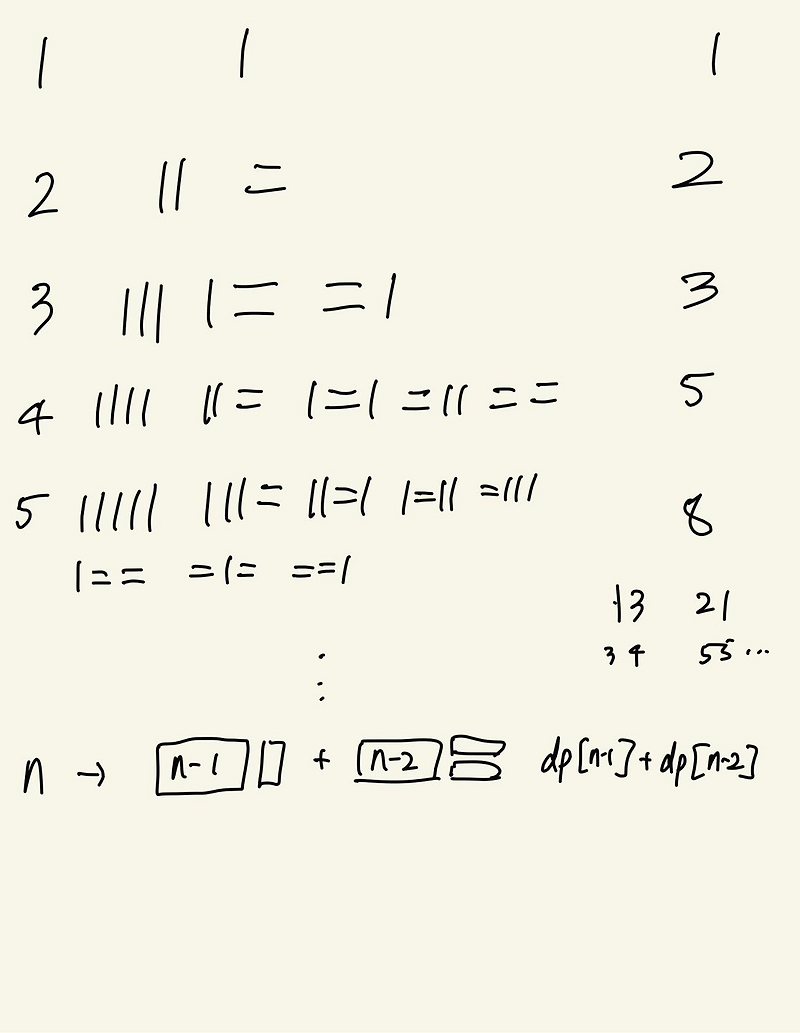 1 | 1
2 || = 2
3 ||| |= =| 3
4 |||| ||= |=| =|| == 5
5 ||||| |||= ||=| |=|| =||| 8
|== =|= ==|
13 21
34 55 ...
⋮
n → n-1 ▯ + n-2 = dp[n-1]+dp[n-2]